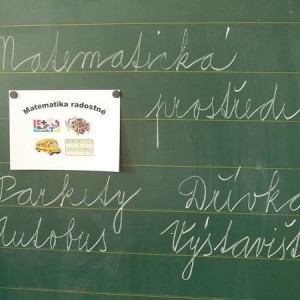 Matematická
Matematika radostně
prostředí
Parkety Dřívka
Autobus Výstaviště